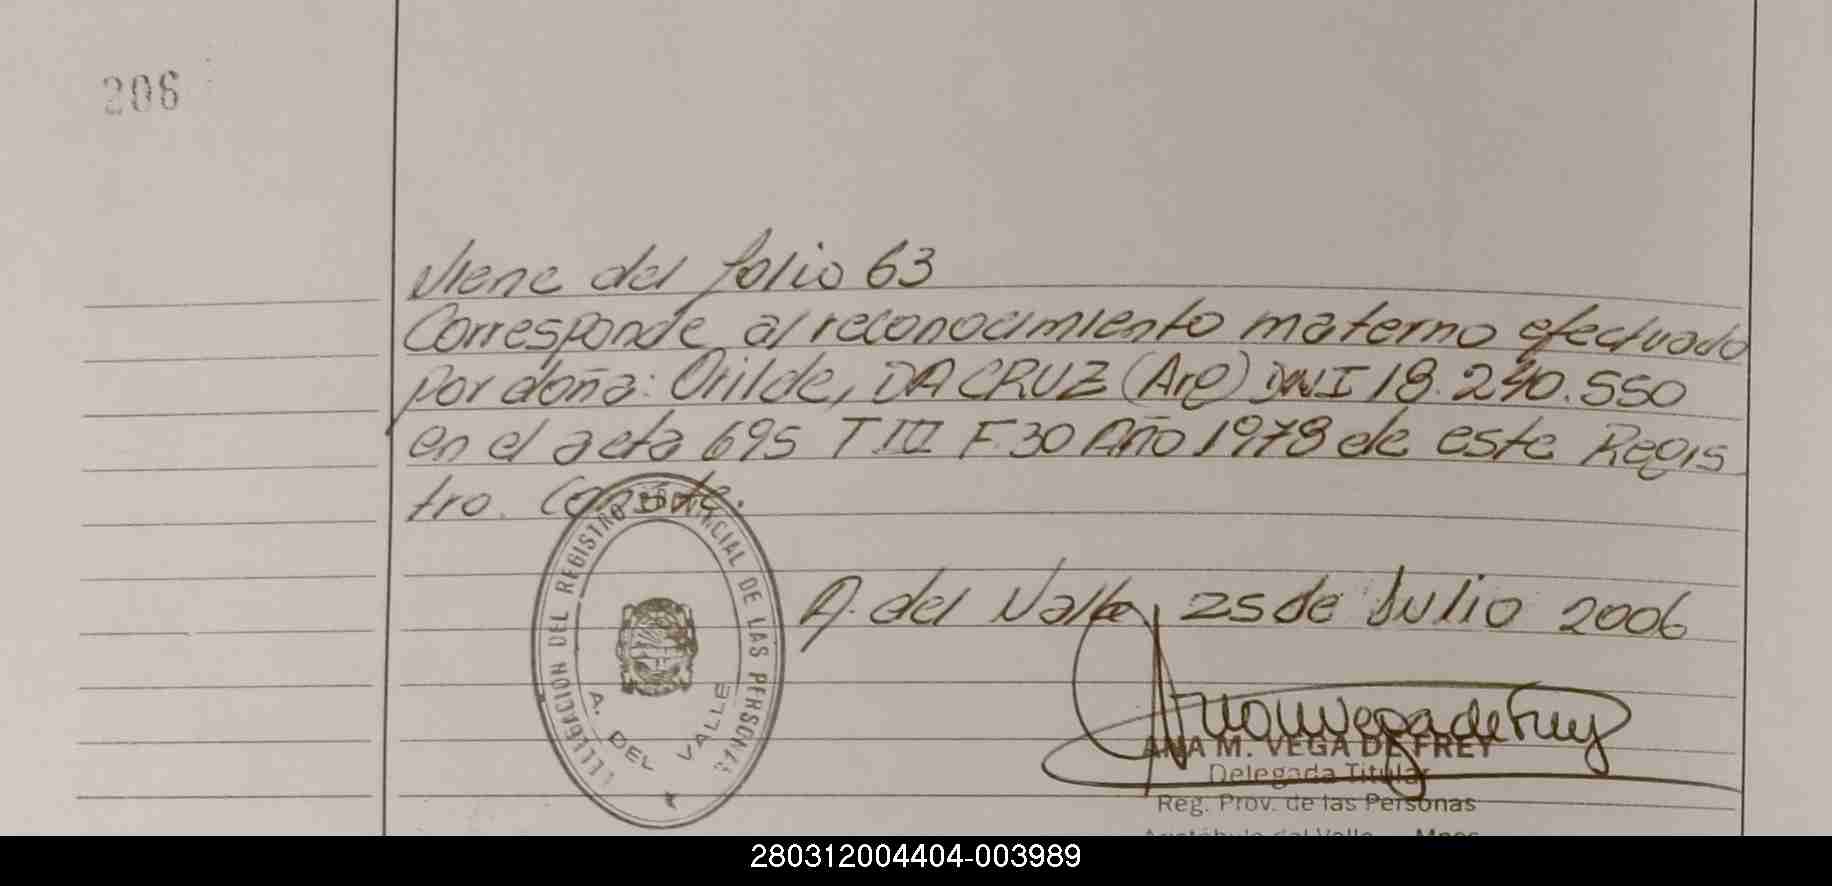 206
Viene del folio 63
Corresponde al reconocimiento materno efectuado
por doña: Orilde, DA CRUZ (Arg) DNI 18.240.550
en el acta 695 T III F.30 Año 1978 de este Regis
tro. Conste.
DELEGACION DEL REGISTRO PROVINCIAL DE LAS PERSONAS
A. DEL VALLE
A. del Valle, 25 de Julio 2006
Ana M Vega de Frey
ANA M. VEGA DE FREY
Delegada Titular
Reg. Prov. de las Personas
Aristóbulo del Valle - Mnes
280312004404-003989